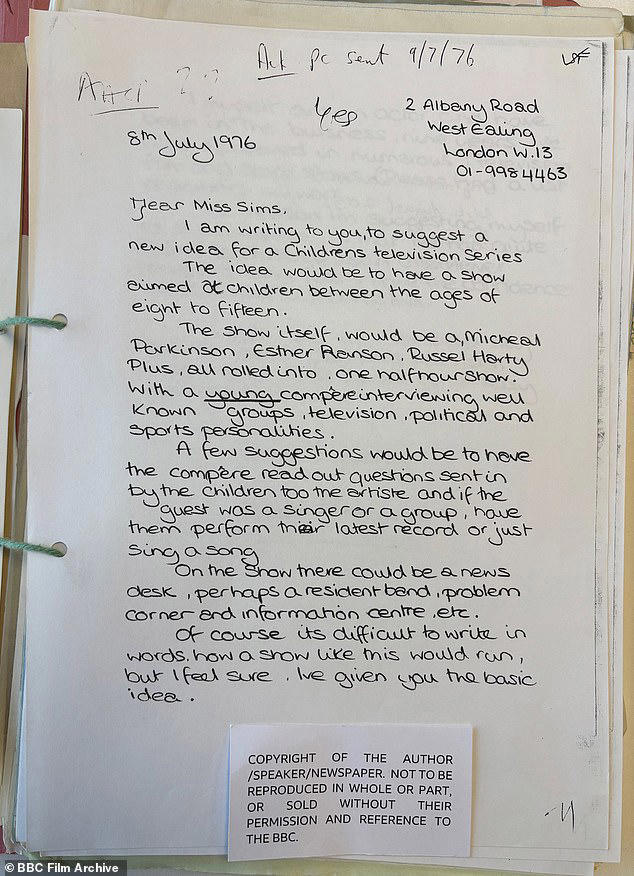 Act pc sent 9/7/76
??
Yes
2 Albany Road
West Ealing
London W.13
01-998 4463
8th July 1976
Dear Miss Sims,
I am writing to you, to suggest a
new idea for a Childrens television series
The idea would be to have a show
aimed at children between the ages of
eight to fifteen.
The show itself, would be a, Micheal
Parkinson, Esther Ranson, Russel Harty
Plus, all rolled into, one half hour show.
With a young compere interviewing well
known groups, television, political and
sports personalities.
A few suggestions would be to have
the compère read out questions sent in
by the children too the artiste and if the
guest was a singer or a group, have
them perform their latest record or just
sing a song
On the show there could be a news
desk, perhaps a resident band, problem
corner and information centre, etc.
Of course its difficult to write in
words, how a show like this would run,
but I feel sure, Ive given you the basic
idea.
COPYRIGHT OF THE AUTHOR
/SPEAKER/NEWSPAPER. NOT TO BE
REPRODUCED IN WHOLE OR PART,
OR SOLD WITHOUT THEIR
PERMISSION AND REFERENCE TO
THE BBC.
© BBC Film Archive